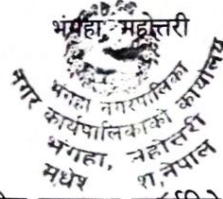 भंगहा महोत्तरी
भंगहा नगरपालिका
नगर कार्यपालिकाको कार्यालय
भंगहा, महोत्तरी
मधेश
श, नेपाल